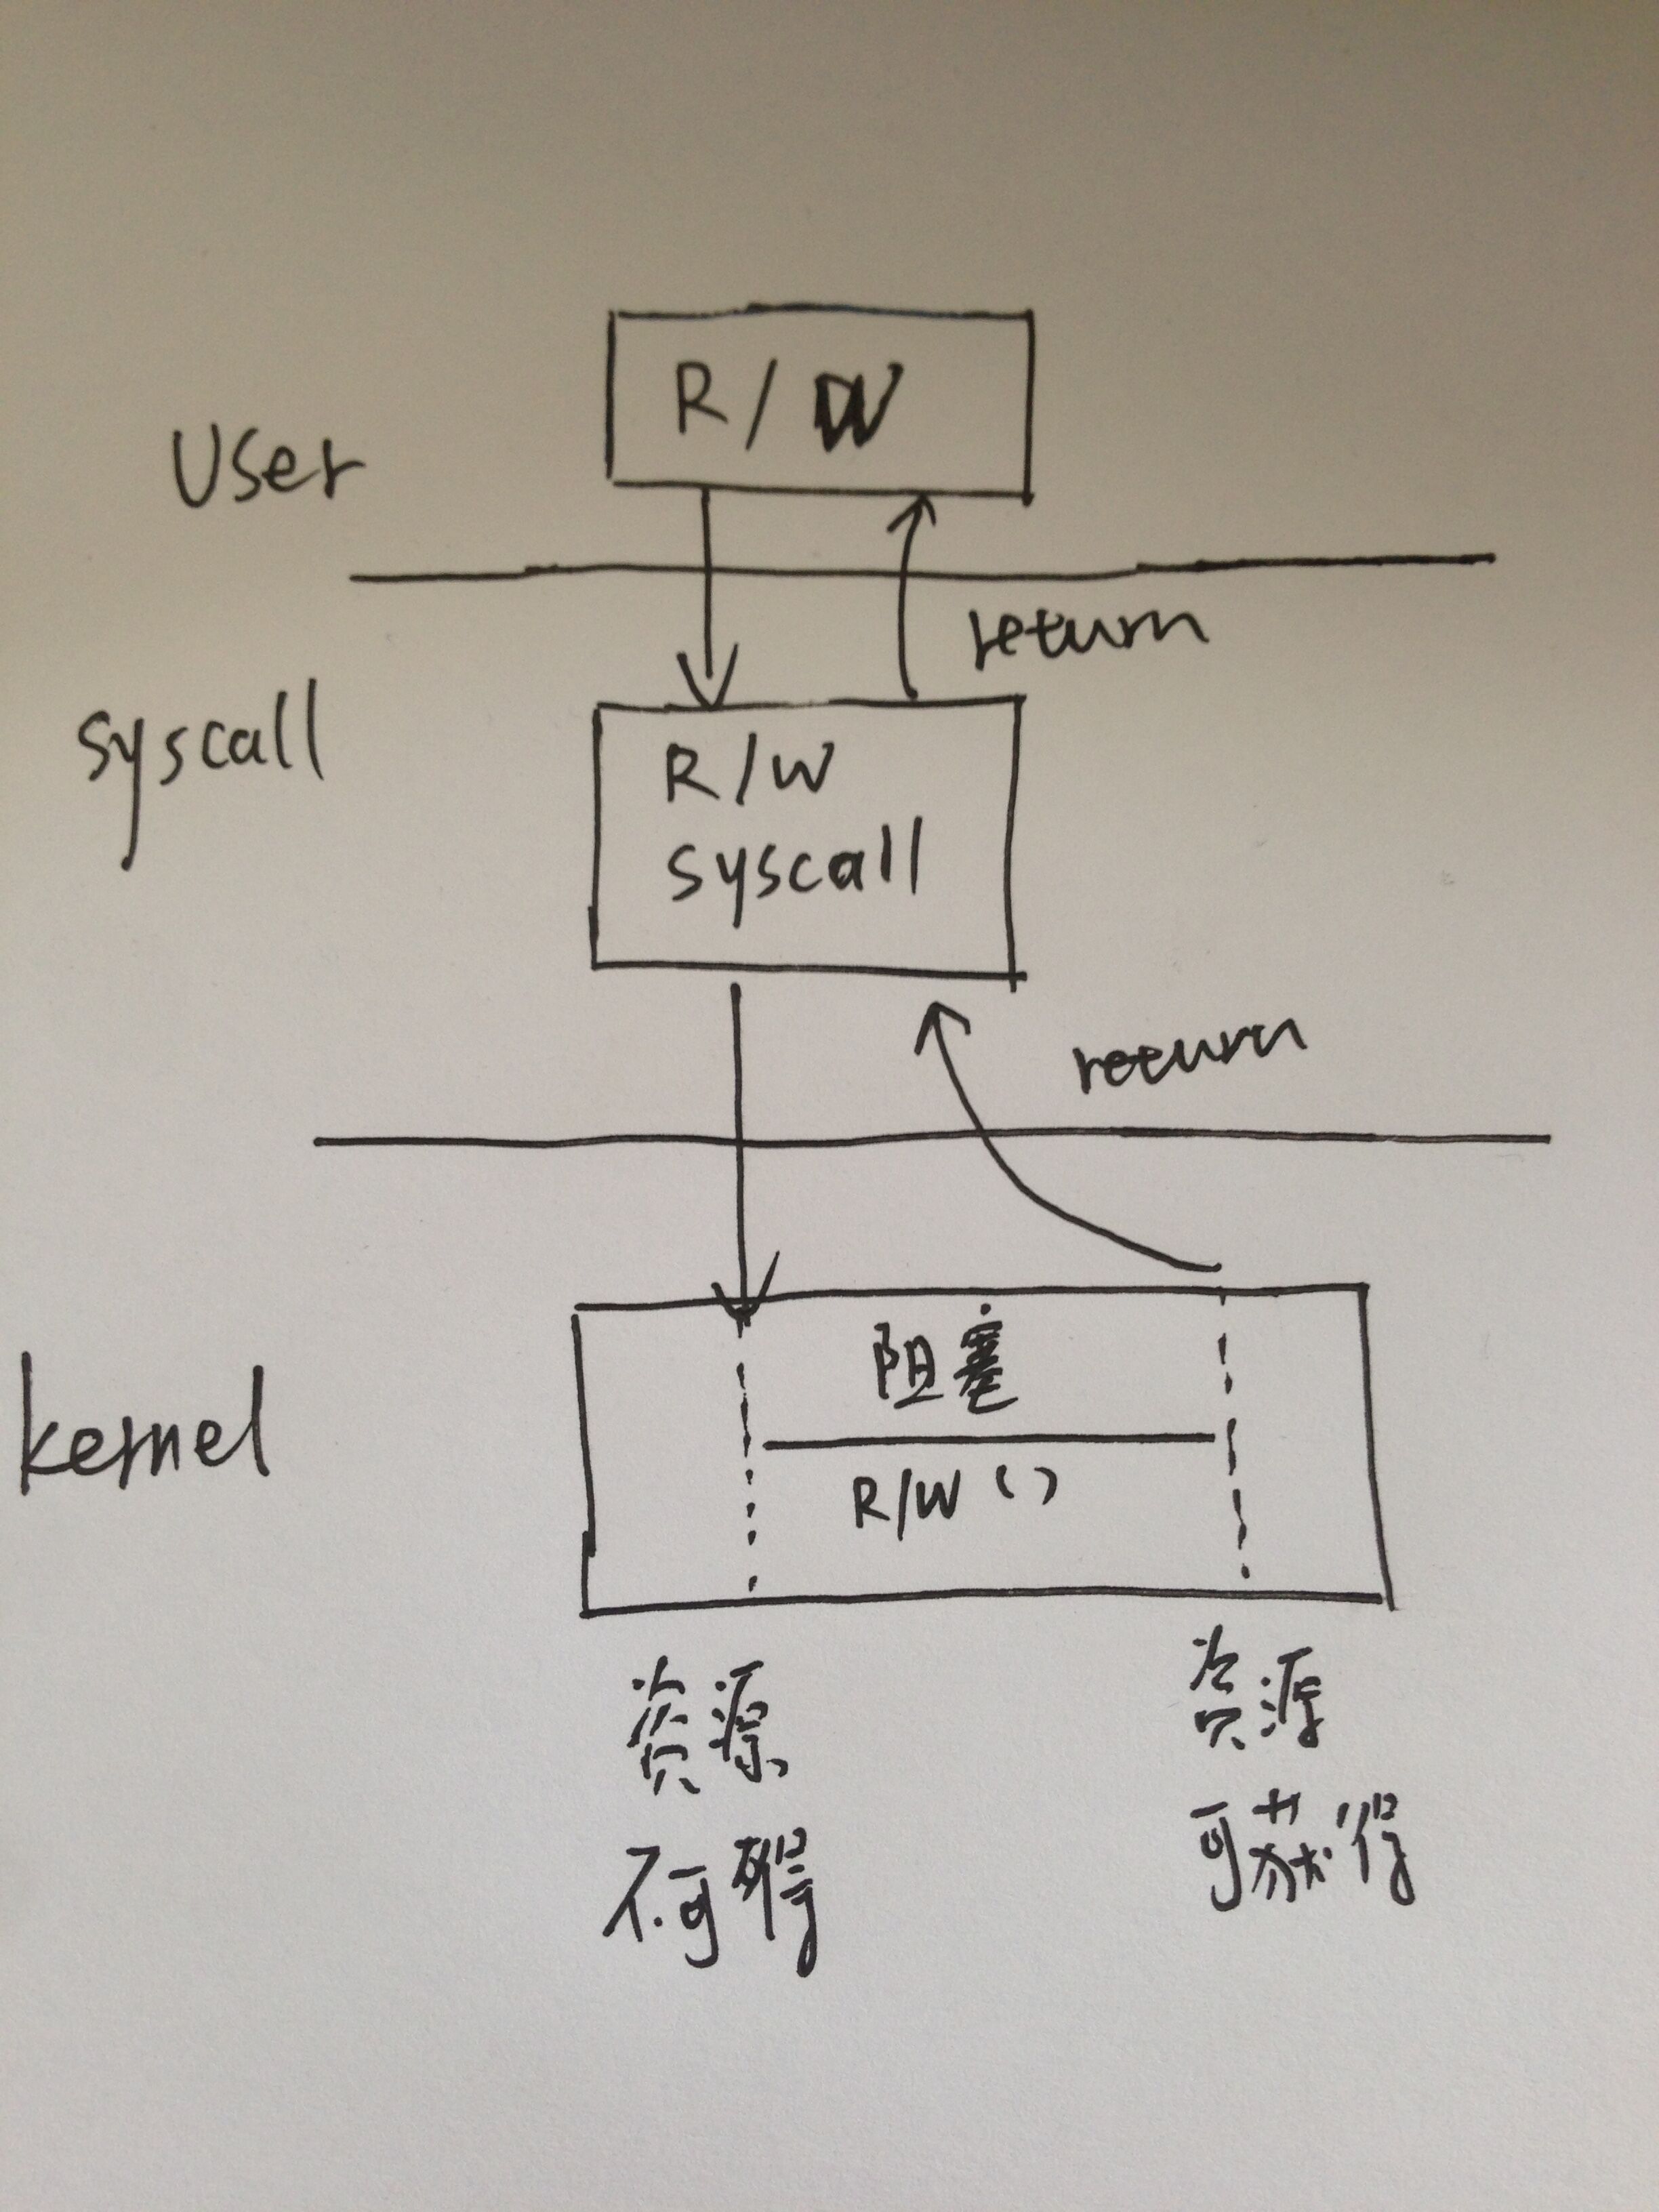 R/W
User
return
syscall
R/W
syscall
return
阻塞
kernel
R/W()
资源
不可得
资源
可获得